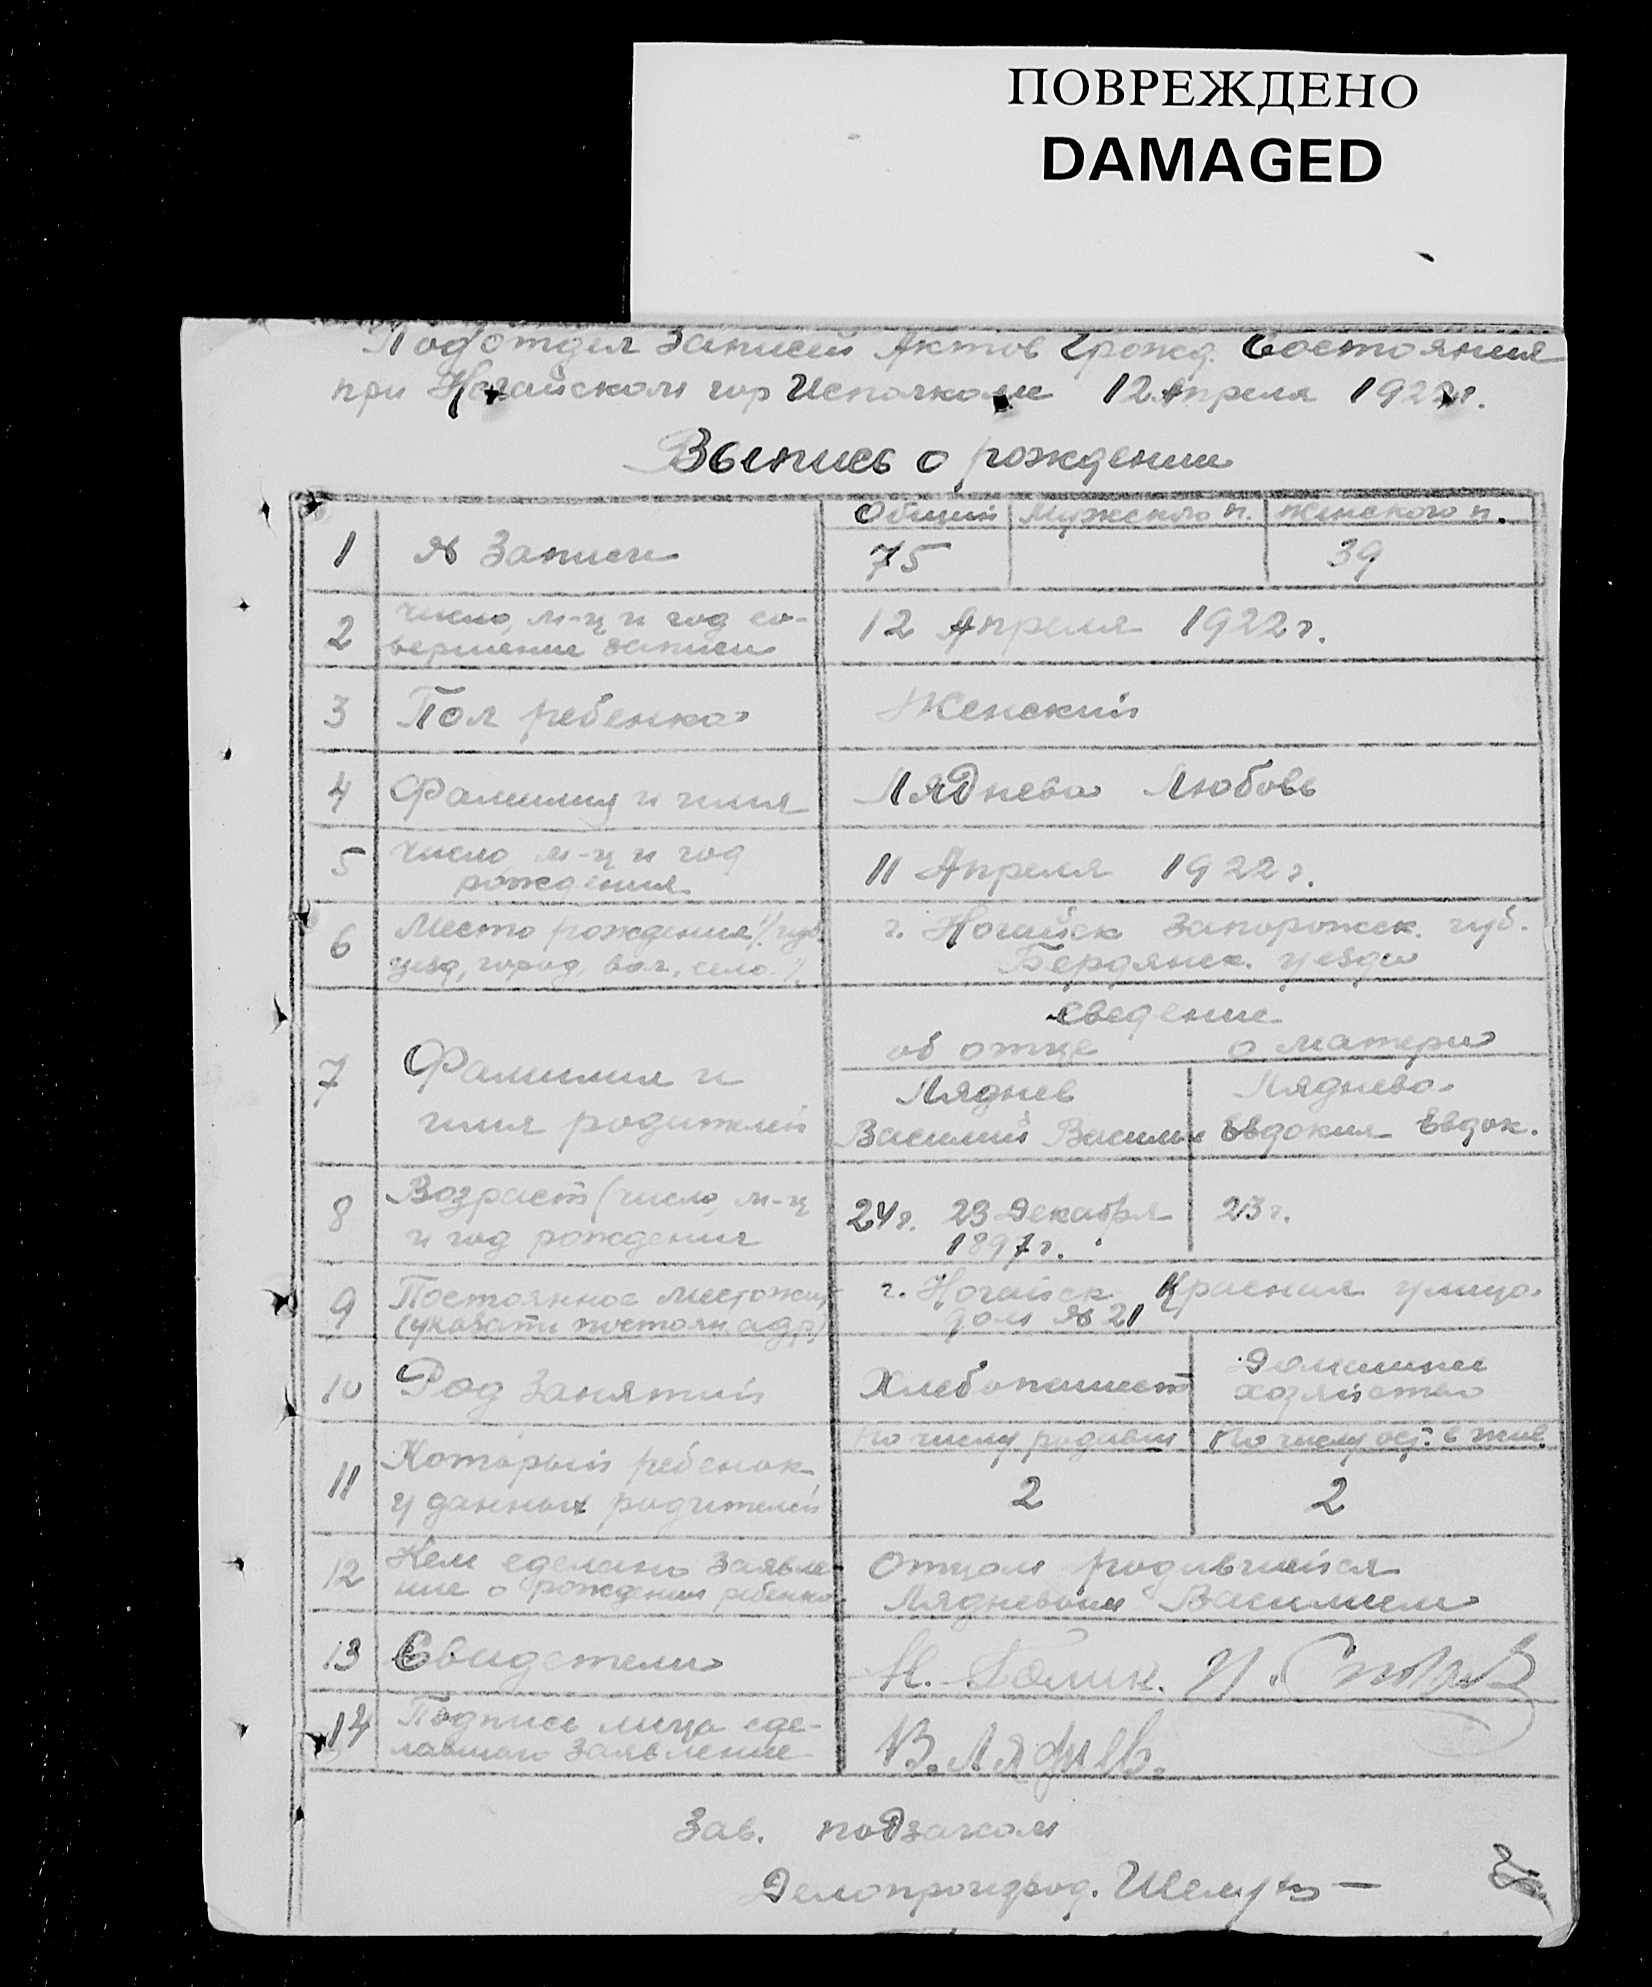 ПОВРЕЖДЕНО
DAMAGED
Подотдел Записей Актов Гражд. Состояния
при Ногайском гор Исполкоме 12 Апреля 1922 г.
Выпись о рождении
Общий Мужского п. Женского п.
1 № Записи 75 39
2 число, м-ц и год со-
вершение записи 12 Апреля 1922 г.
3 Пол ребенка Женский
4 Фамилия и имя Ляднева Любовь
5 число м-ц и год
рождения 11 Апреля 1922 г.
6 Место рождения /губ.
уезд, город, вол., село./ г. Ногайск Запорожск. губ.
Бердянск. уезда
сведение
об отце о матери
7 Фамилия и
имя родителей
Ляднев Ляднева
Василий Василь Евдокия Евдок.
8 Возраст (число, м-ц
и год рождения 24 г. 23 Декабря 23 г.
1897 г.
9 Постоянное местожит
(указать постоян. адр) г. Ногайск Красная улица
дом № 21
10 Род занятий Хлебопашест Домашнее
хозяйство
По числу родивш По числу ост. в жив.
11 Который ребенок
у данных родителей 2 2
12 Кем сделано заявле-
ние о рождении ребенка Отцом родившейся
Лядневым Василием
13 Свидетели Н. Голик. И.
14 Подпись лица сде-
лавшего заявление В. Ляднев.
Зав. подзагом
Делопроизвод.